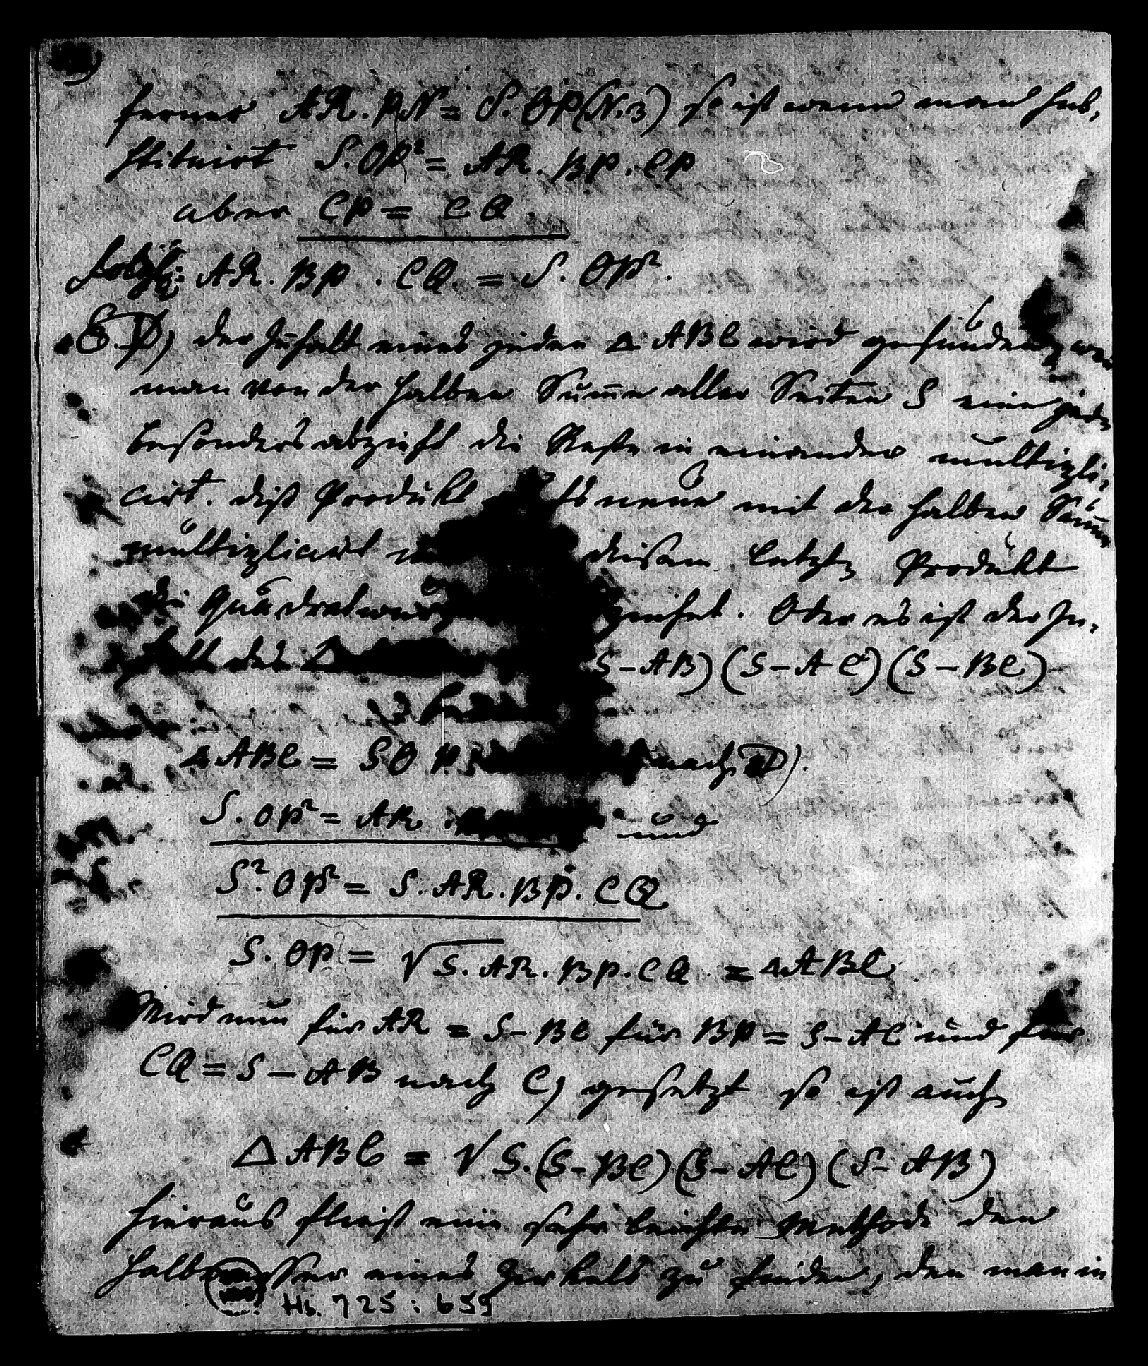 ferner AR. PN = S. OP (N. 3) so ist wenn man sub,
stituirt S. OP² = AR. BP. CP
aber CP = CQ
folgl: AR. BP. CQ. = S. OP².
der Inhalt eines jeden Δ ABC wird gefunden, wen
man von der halben Summe aller Seiten S eine jede
besonders abzieht die Reste in einander multipli,
cirt. diß Produkt neue mit der halben Summ
multiplicirt diesem letzten Produkt
die Quadratwurz ziehet. Oder es ist der In,
halt des Δ S – AB) (S – AC) (S – BC)
Δ ABC = S O P. nach D).
S. OP² = AR. und
S². OP² = S. AR. BP. CQ
S. OP = √S. AR. BP. CQ = Δ ABC
Wird nun für AR = S – BC für BP = S – AC und für
CQ = S – AB nach C) gesetzt so ist auch
Δ ABC = √S. (S – BC) (S – AC) (S – AB)
hieraus fließt eine sehr leichte Methode den
Halbmesser eines Zirkels zu finden, den man in
Hs. 725 : 659